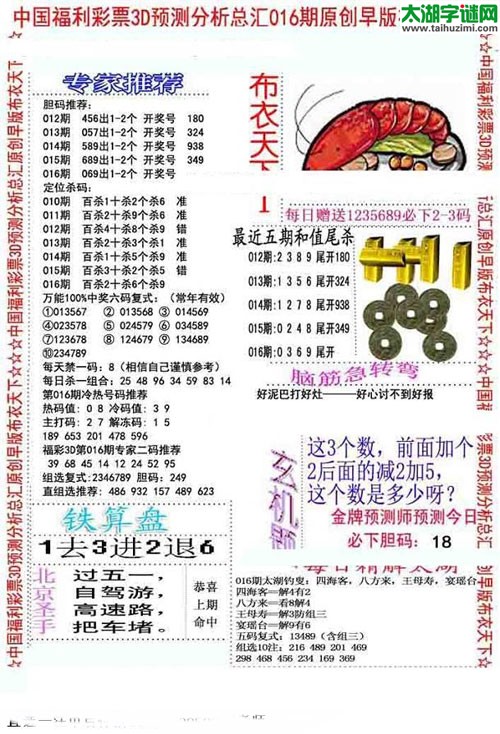 太湖字谜网
www.taihuzimi.com
中国福利彩票3D预测分析总汇016期原创早版
专家推荐
胆码推荐:
012期 456出1-2个 开奖号 180
013期 057出1-2个 开奖号 324
014期 589出1-2个 开奖号 938
015期 689出1-2个 开奖号 349
016期 069出1-2个 开奖号
定位杀码:
010期 百杀1十杀2个杀6 准
011期 百杀0十杀2个杀6 准
012期 百杀4十杀8个杀9 错
013期 百杀2十杀3个杀9 准
014期 百杀1十杀7个杀9 准
015期 百杀3十杀2个杀5 错
016期 百杀2十杀6个杀9
万能100%中奖六码复式: (常年有效)
①013567 ②013568 ③014569
④023578 ⑤024579 ⑥034679
⑦123678 ⑧124679 ⑨134689
⑩234789
每天禁一码: 8 (相信自己谨慎参考)
每日杀一组合: 25 48 96 34 59 83 14
第016期冷热号码推荐
热码值: 0 8 冷码值: 3 9
主打码: 2 7 解冻码: 1 5
189 653 201 478 596
福彩3D第016期专家二码推荐
39 68 45 14 12 24 52 95
组选复式: 2346789 胆码: 249
直组选推荐: 486 932 157 489 623
铁算盘
1去3进2退6
北京圣手
过五一,
自驾游,
高速路,
把车堵。
恭喜
上期
命中
布衣天下
每日赠送1235689必下2-3码
最近五期和值尾杀
012期: 2 3 8 9 尾开180
013期: 1 3 5 6 尾开324
014期: 1 2 7 8 尾开938
015期: 0 2 4 8 尾开349
016期: 0 3 6 9 尾开
脑筋急转弯
好泥巴打好灶———好心讨不到好报
玄机
这3个数,前面加个
2后面的减2加5,
这个数是多少呀?
金牌预测师预测今日
必下胆码: 18
每日精解太湖
016期太湖钓叟: 四海客, 八方来, 王母寿, 宴瑶台
四海客==解4有2
八方来==看8解4
王母寿==解3防组三
宴瑶台==解9有6
五码复式: 13489 (含组三)
组选10注: 216 489 201 469
298 468 456 234 169 369
☆中国福利彩票3D预测分析总汇原创早版布衣天下☆☆☆中国福利彩票3D预测分析总汇原创早版布衣天下☆